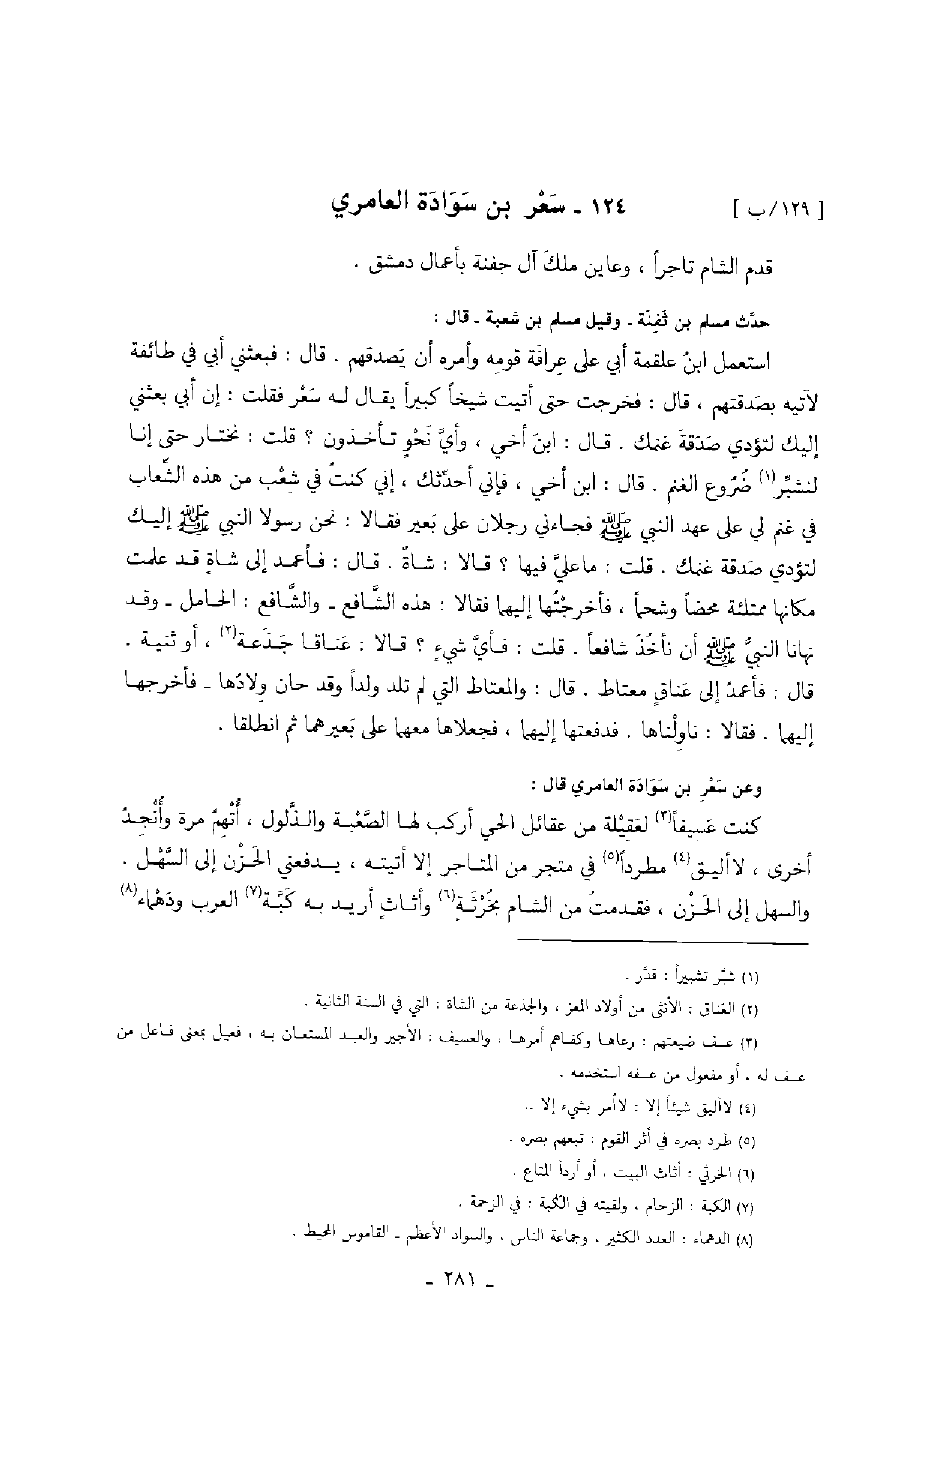 [ ١٢٩/ب ]
١٢٤ ـ سَعْر بن سَوَادَة العامري
قدم الشام تاجراً ، وعاين ملكَ آل جفنة بأعمال دمشق .
حدَّث مسلم بن ثَفِنَة ـ وقيل مسلم بن شعبة ـ قال :
استعمل ابنُ علقمة أبي على عِرافَة قومِه وأمره أن يَصدقهم . قال : فبعثني أبي في طائفة
لآتيه بصَدقتهم ، قال : فخرجت حتى أتيت شيخاً كبيراً يقال له سَعْر فقلت : إن أبي بعثني
إليك لتؤدي صَدَقةَ غنمك . قال : ابنَ أخي ، وأيَّ نَحْوٍ تأخذون ؟ قلت : نختار حتى إنا
لنشبِّر(١) ضُروع الغنم . قال : ابن أخي ، فإني أحدّثك ، إني كنتُ في شِعْب من هذه الشِّعاب
في غنم لي على عهد النبي ﷺ فجاءني رجلان على بَعير فقالا : نحن رسولا النبي ﷺ إليك
لتؤدي صَدقة غنمك . قلت : ماعليَّ فيها ؟ قالا : شاةٌ . قال : فأعمد إلى شاةٍ قد علمت
مكانها ممتلئة محضاً وشحماً ، فأخرجتُها إليهما فقالا : هذه الشَّافع ـ والشَّافع : الحامل ـ وقد
نهانا النبيُّ ﷺ أن نأخُذَ شافعاً . قلت : فأيَّ شيءٍ ؟ قالا : عَناقا جَذَعة(٢) ، أو ثنية .
قال : فأعمدُ إلى عَناقٍ معتاط . قال : والمعتاط التي لم تلد ولداً وقد حان وِلادُها ـ فأخرجها
إليهما . فقالا : ناولْناها . فدفعتها إليهما ، فجعلاها معهما على بَعيرهما ثم انطلقا .
وعن سَعْرِ بن سَوَادَة العامري قال :
كنت عَسيفاً(٣) لعَقِيْلة من عقائل الحي أركب لها الصَّعْبة والذَّلول ، أُتْهِمُ مرة وأُنْجِدُ
أخرى ، لاأليق(٤) مطرداً(٥) في متجر من المتاجر إلا أتيته ، يدفعني الحَزْن إلى السَّهْل .
والسهل إلى الحَزْن ، فقدمتُ من الشام بخُرْثَةٍ(٦) وأثاثٍ أريد به كَبَّة(٧) العرب ودَهْماء(٨)
(١) شبَّر تشبيراً : قدَّر .
(٢) العَناق : الأنثى من أولاد المعز ، والجذعة من الشاة : التي في السنة الثانية .
(٣) عسف ضيعتهم : رعاها وكفاهم أمرها . والعسيف : الأجير والعبد المستعان به ، فعيل بمعنى فاعل من
عسف له . أو مفعول من عسفه استخدمه .
(٤) لاأليق شيئاً إلا : لاأمر بشيء إلا ..
(٥) طرد بصره في أثر القوم : تبعهم بصره .
(٦) الخرثي : أثاث البيت ، أو أردأ المتاع .
(٧) الكبة : الزحام ، ولقيته في الكبة : في الزحمة .
(٨) الدهماء : العدد الكثير ، وجماعة الناس ، والسواد الأعظم ـ القاموس المحيط .
ـ ٢٨١ ـ